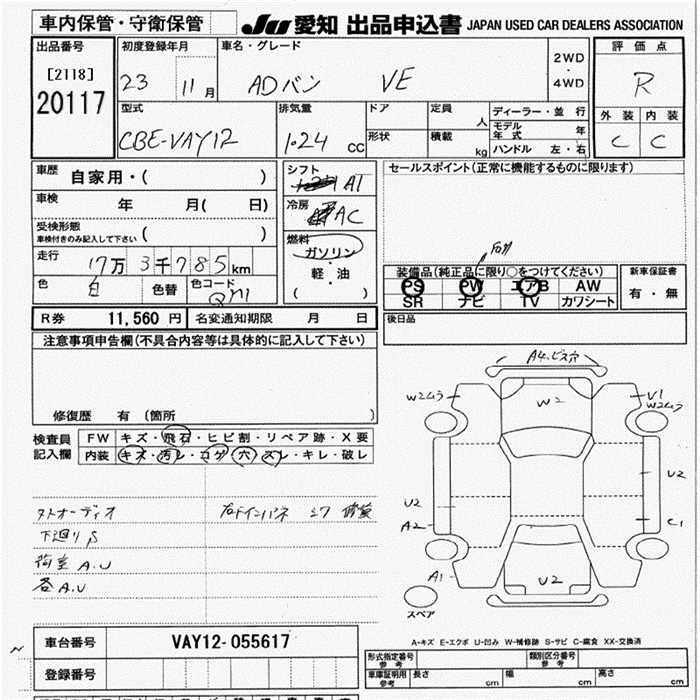 車内保管・守衛保管
JU 愛知 出品申込書 JAPAN USED CAR DEALERS ASSOCIATION
出品番号
[2118]
20117
初度登録年月
23 11 月
車名・グレード
ADバン VE
2WD
・
4WD
評価点
R
外装 内装
C C
型式
CBE-VAY12
排気量
1.24 CC
ドア
形状
定員
人
積載
kg
ディーラー・並 行
モデル年式 年
ハンドル 左・右
車歴
自家用・( )
車検
年 月( 日)
受検形態
車検付きのみ記入して下さい ( )
走行
17万 3千785km
色 白 色替 色コード QM1
シフト
A1
冷房
AC
燃料
ガソリン
・
軽・油
( )
セールスポイント(正常に機能するものに限ります)
装備品(純正品に限り○をつけてください)
PS PW エアB AW
SR ナビ TV カワシート
新車保証書
有・無
後日品
R券 11,560 円 名変通知期限 月 日
注意事項申告欄(不具合内容等は具体的に記入して下さい)
修復歴 有 〔箇所 〕
検査員記入欄
FW キズ・飛石・ヒビ割・リペア跡・X要
内装 キズ・汚レ・コゲ・穴・スレ・キレ・破レ
外オーディオ
下廻りS
荷室A.U
各A.U
A4.ビス穴
W2ムラ
W2
V1
W2ムラ
U2
U2
A2
C1
A1
U2
スペア
A-キズ E-エクボ U-凹み W-補修跡 S-サビ C-腐食 XX-交換済
車台番号 VAY12-055617
登録番号
形式指定番号
参考
類別区分番号
参考
車庫証明用
参考
長さ cm 幅 cm 高さ cm